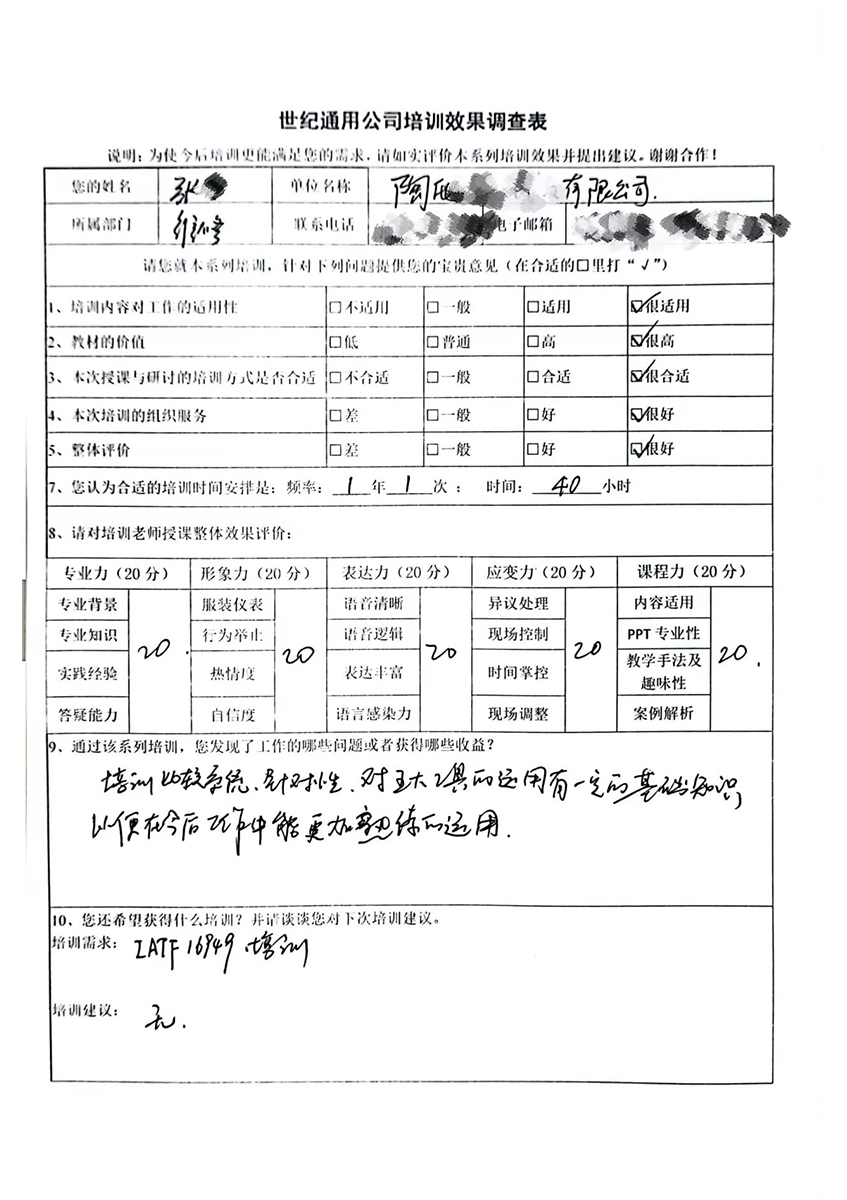 世纪通用公司培训效果调查表
说明：为使今后培训更能满足您的需求，请如实评价本系列培训效果并提出建议。谢谢合作！
您的姓名 张 单位名称 有限公司.
所属部门 联系电话 电子邮箱
请您就本系列培训，针对下列问题提供您的宝贵意见（在合适的□里打“√”）
1、培训内容对工作的适用性 □不适用 □一般 □适用 ☑很适用
2、教材的价值 □低 □普通 □高 ☑很高
3、本次授课与研讨的培训方式是否合适 □不合适 □一般 □合适 ☑很合适
4、本次培训的组织服务 □差 □一般 □好 ☑很好
5、整体评价 □差 □一般 □好 ☑很好
7、您认为合适的培训时间安排是：频率：1年1次； 时间：40小时
8、请对培训老师授课整体效果评价：
专业力（20分） 形象力（20分） 表达力（20分） 应变力（20分） 课程力（20分）
专业背景 服装仪表 语音清晰 异议处理 内容适用
专业知识 行为举止 语音逻辑 现场控制 PPT专业性
20. 20 20 20 20.
实践经验 热情度 表达丰富 时间掌控 教学手法及
趣味性
答疑能力 自信度 语言感染力 现场调整 案例解析
9、通过该系列培训，您发现了工作的哪些问题或者获得哪些收益？
培训比较系统、针对性、对五大工具的运用有一定的基础知识，
以便在今后工作中能更加熟练的运用.
10、您还希望获得什么培训？并请谈谈您对下次培训建议。
培训需求： IATF 16949 培训
培训建议： 无.